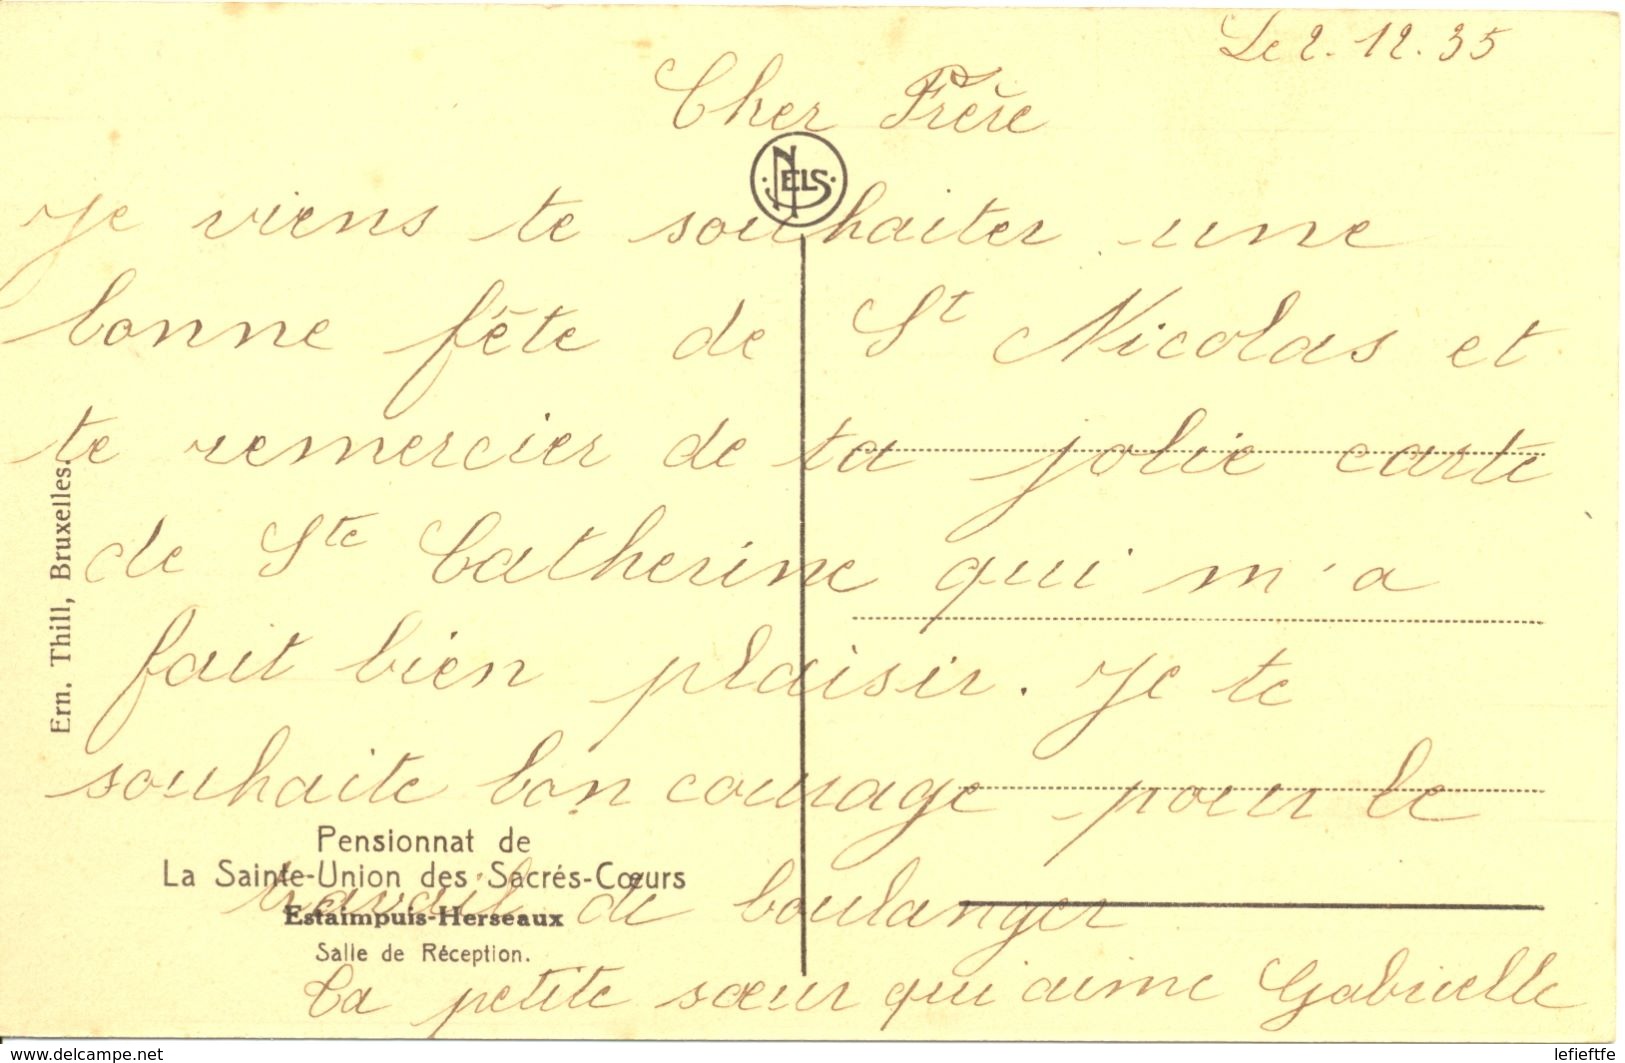 Le 2.12.35
Cher Frère
NELS
Je viens te souhaiter une
bonne fête de St Nicolas et
te remercier de ta jolie carte
de Ste Catherine qui m'a
fait bien plaisir. Je te
souhaite bon courage pour le
travail de boulanger
Ta petite sœur qui aime Gabrielle
Ern. Thill, Bruxelles.
Pensionnat de
La Sainte-Union des Sacrés-Cœurs
Estaimpuis-Herseaux
Salle de Réception.
www.delcampe.net
lefieftfe